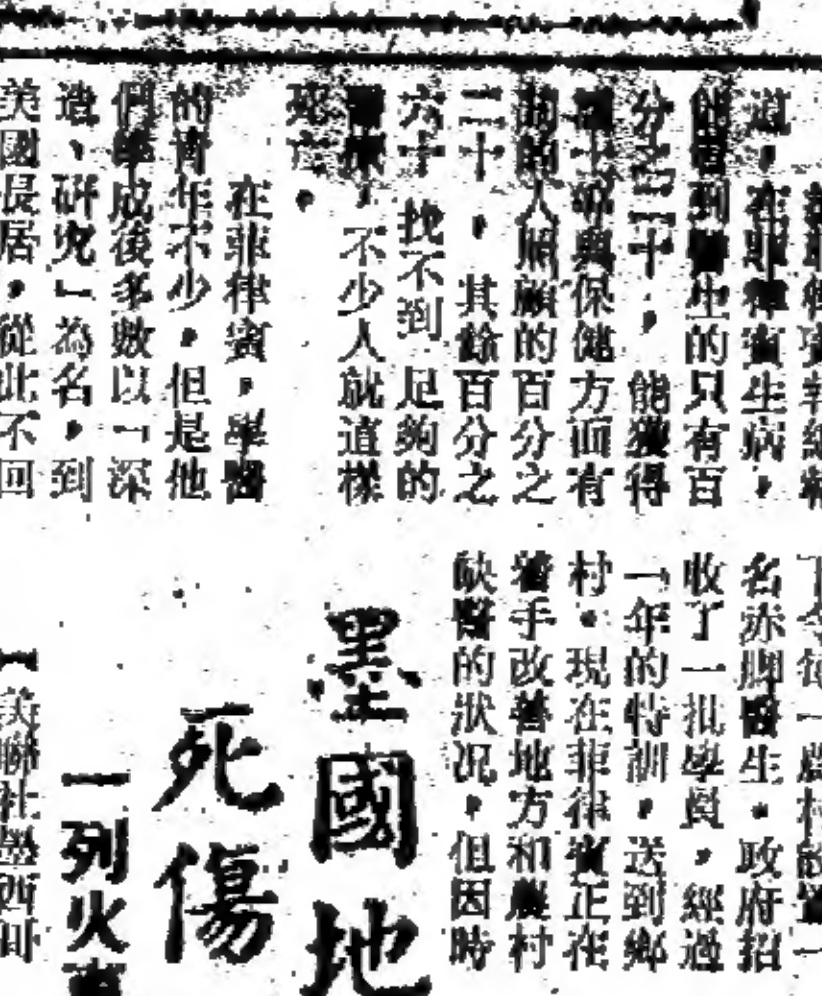 道，在菲律賓生病，
能看到醫生的只有百
分之二十，能獲得
護士或與保健方面有
關的人照顧的百分之
二十，其餘百分之
六十找不到足夠的
醫療，不少人就這樣
死亡。
在菲律賓，學醫
的青年不少，但是他
們學成後多數以「深
造、研究」為名，到
美國長居，從此不回
名赤脚醫生。政府招
收了一批學員，經過
一年的特訓，送到鄉
村。現在菲律賓正在
着手改善地方和農村
缺醫的狀况，但因時
墨國地
死傷
一列火車
【美聯社墨西哥